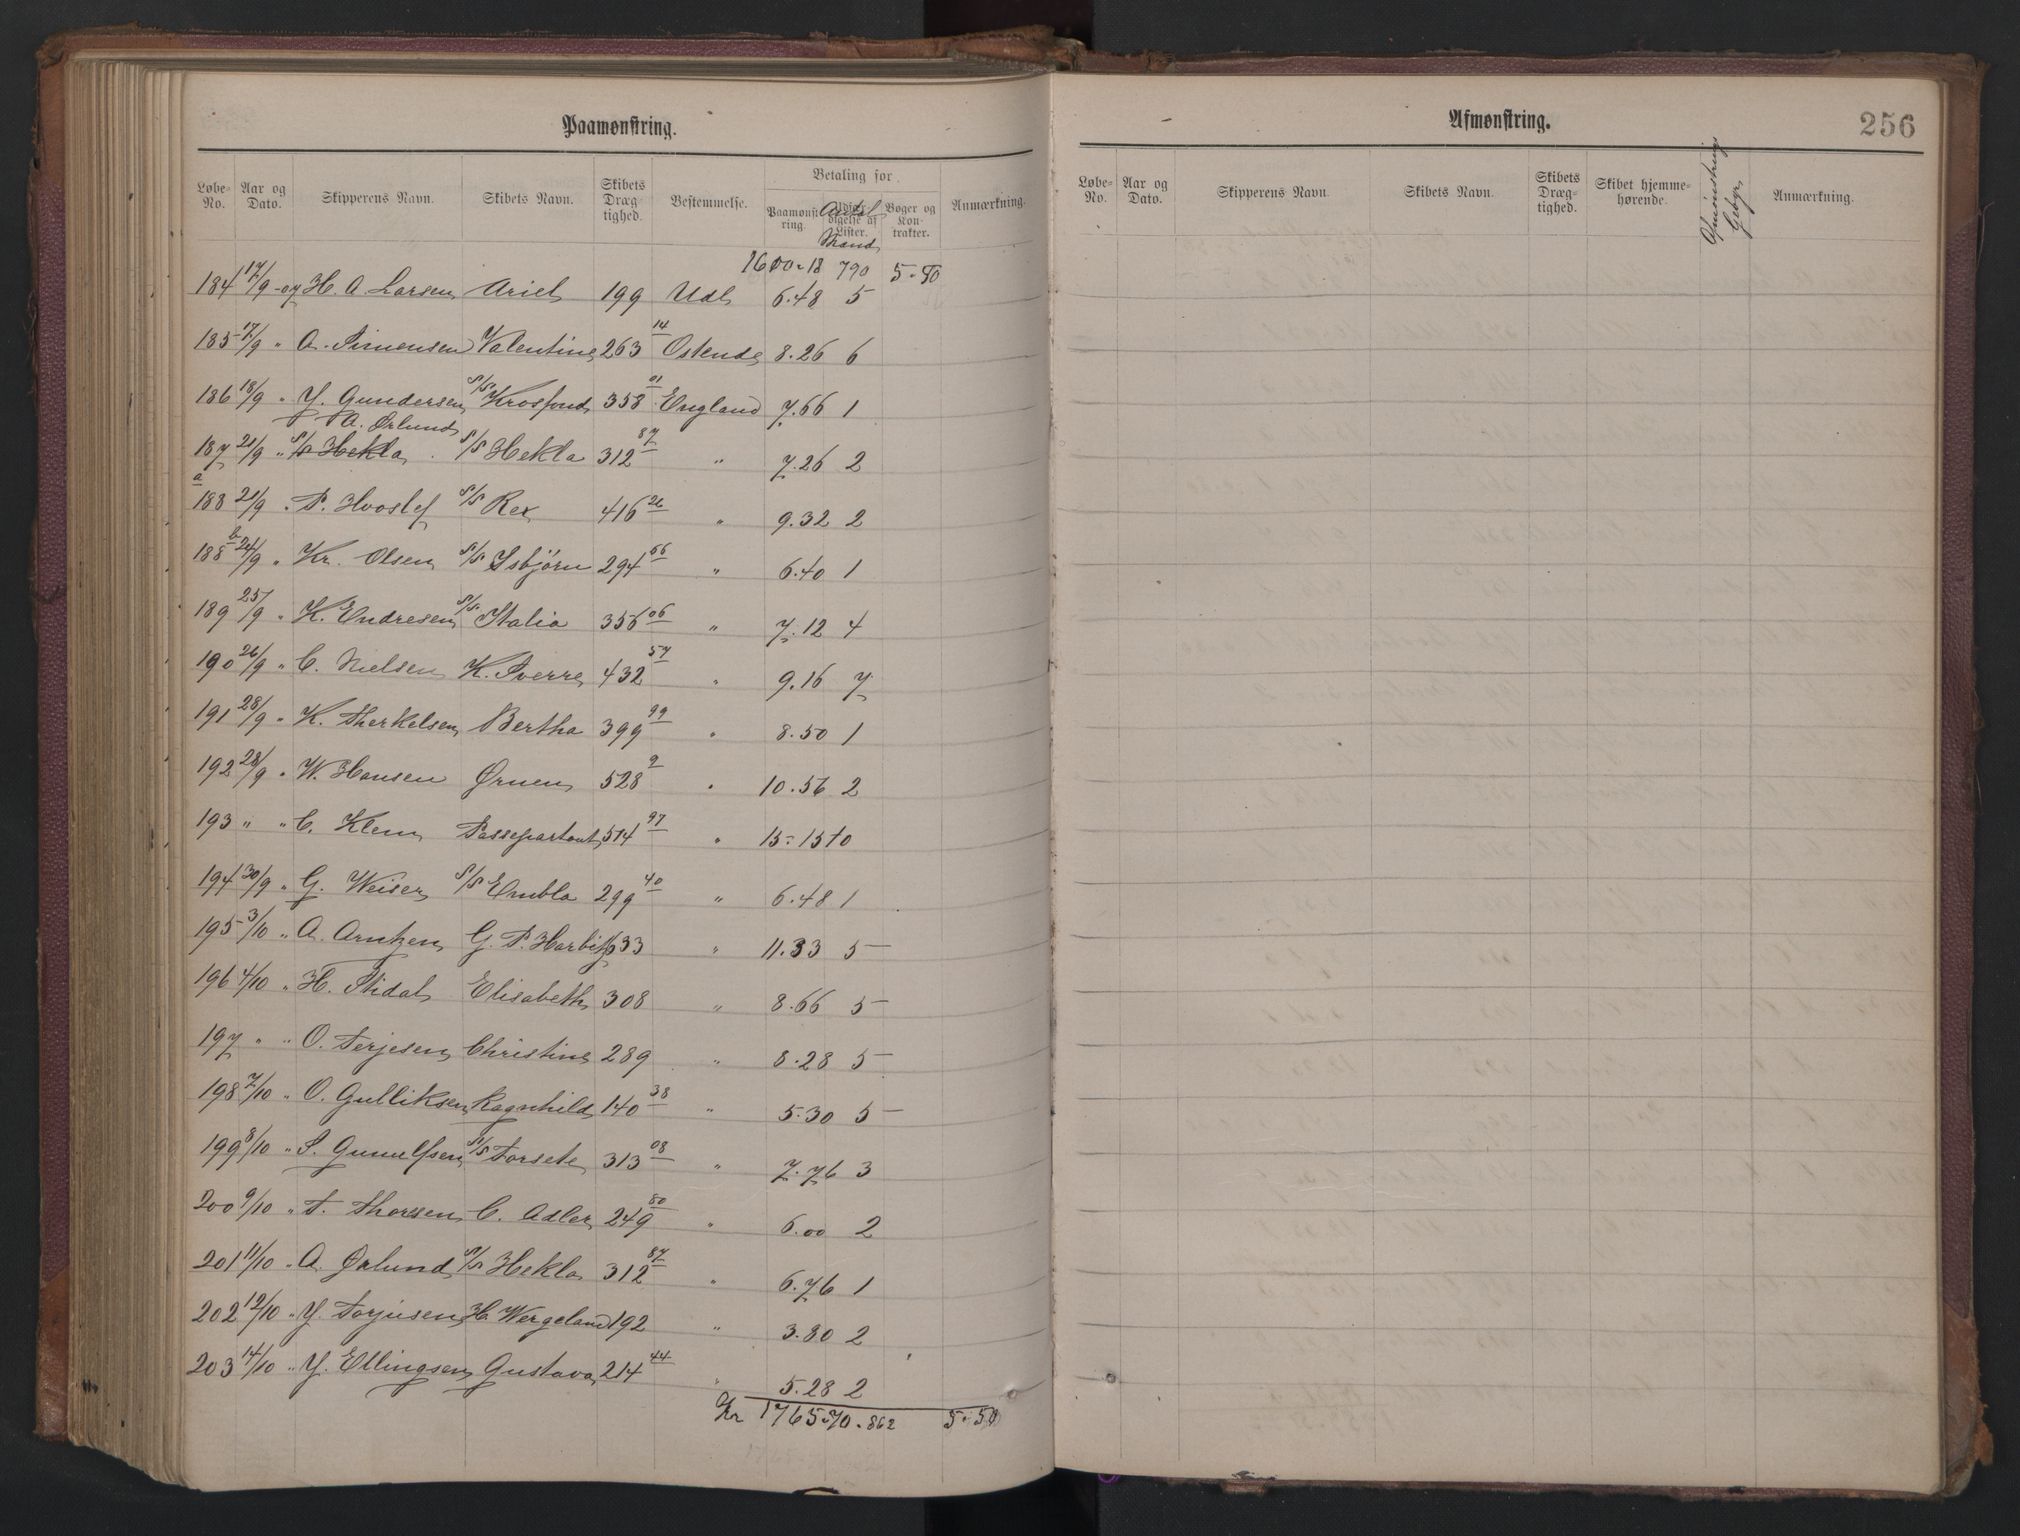 Paamønstring.
Løbe-No. Aar og Dato. Skipperens Navn. Skibets Navn. Skibets Dræg-tighed. Bestemmelse. Betaling for Paamønst-ring. Antal Mand Bøger og Kon-trakter. Anmærkning.
1600.18 790 5.50
184 17/9 - 07 H. A. Larsen Ariel 199 Udl 6.48 5
185 17/9 " A. Simensen Valentine 263 14 Ostende 8.26 6
186 18/9 " Y. Gundersen S/S Krosfond 358 01 England 7.66 1
A. Ørlund
187 21/9 " S/S Hekla S/S Hekla 312 87 " 7.26 2
188 a 21/9 " P. Hvoslef S/S Rex 416 26 " 9.32 2
188 b 24/9 " Kr. Olsen S/S Isbjørn 294 66 " 6.40 1
189 25/9 " K. Endresen S/S Italia 356 06 " 7.12 4
190 26/9 " C. Nielsen K. Sverre 432 57 " 9.16 7
191 28/9 " K. Therkelsen Bertha 399 99 " 8.50 1
192 28/9 " W. Hansen Ørnen 528 9 " 10.56 2
193 " " C. Klem Passepartout 514 97 " 15-15 10
194 30/9 " G. Weiser S/S Embla 299 40 " 6.48 1
195 3/10 " A. Arntzen G. P. Harbitz 633 " 11.33 5
196 4/10 " H. Stidal Elisabeth 308 " 8.66 5
197 " " O. Terjesen Christine 289 " 8.28 5
198 7/10 " O. Gulliksen Ragnhild 140 38 " 5.30 5
199 8/10 " S. Gunulfsen S/S Forsete 313 08 " 7.76 3
200 9/10 " T. Thoresen C. Adler 249 80 " 6.00 2
201 11/10 " A. Ørlund S/S Hekla 312 87 " 6.76 1
202 12/10 " Y. Torjusen H. Wergeland 192 " 3.80 2
203 14/10 " Y. Ellingsen Gustava 214 44 " 5.28 2
Kr 1765.70 . 862 5.50
Afmønstring.
256
Løbe-No. Aar og Dato. Skipperens Navn. Skibets Navn. Skibets Dræg-tighed. Skibet hjemme-hørende. Afmønstrings Gebyr Anmærkning.